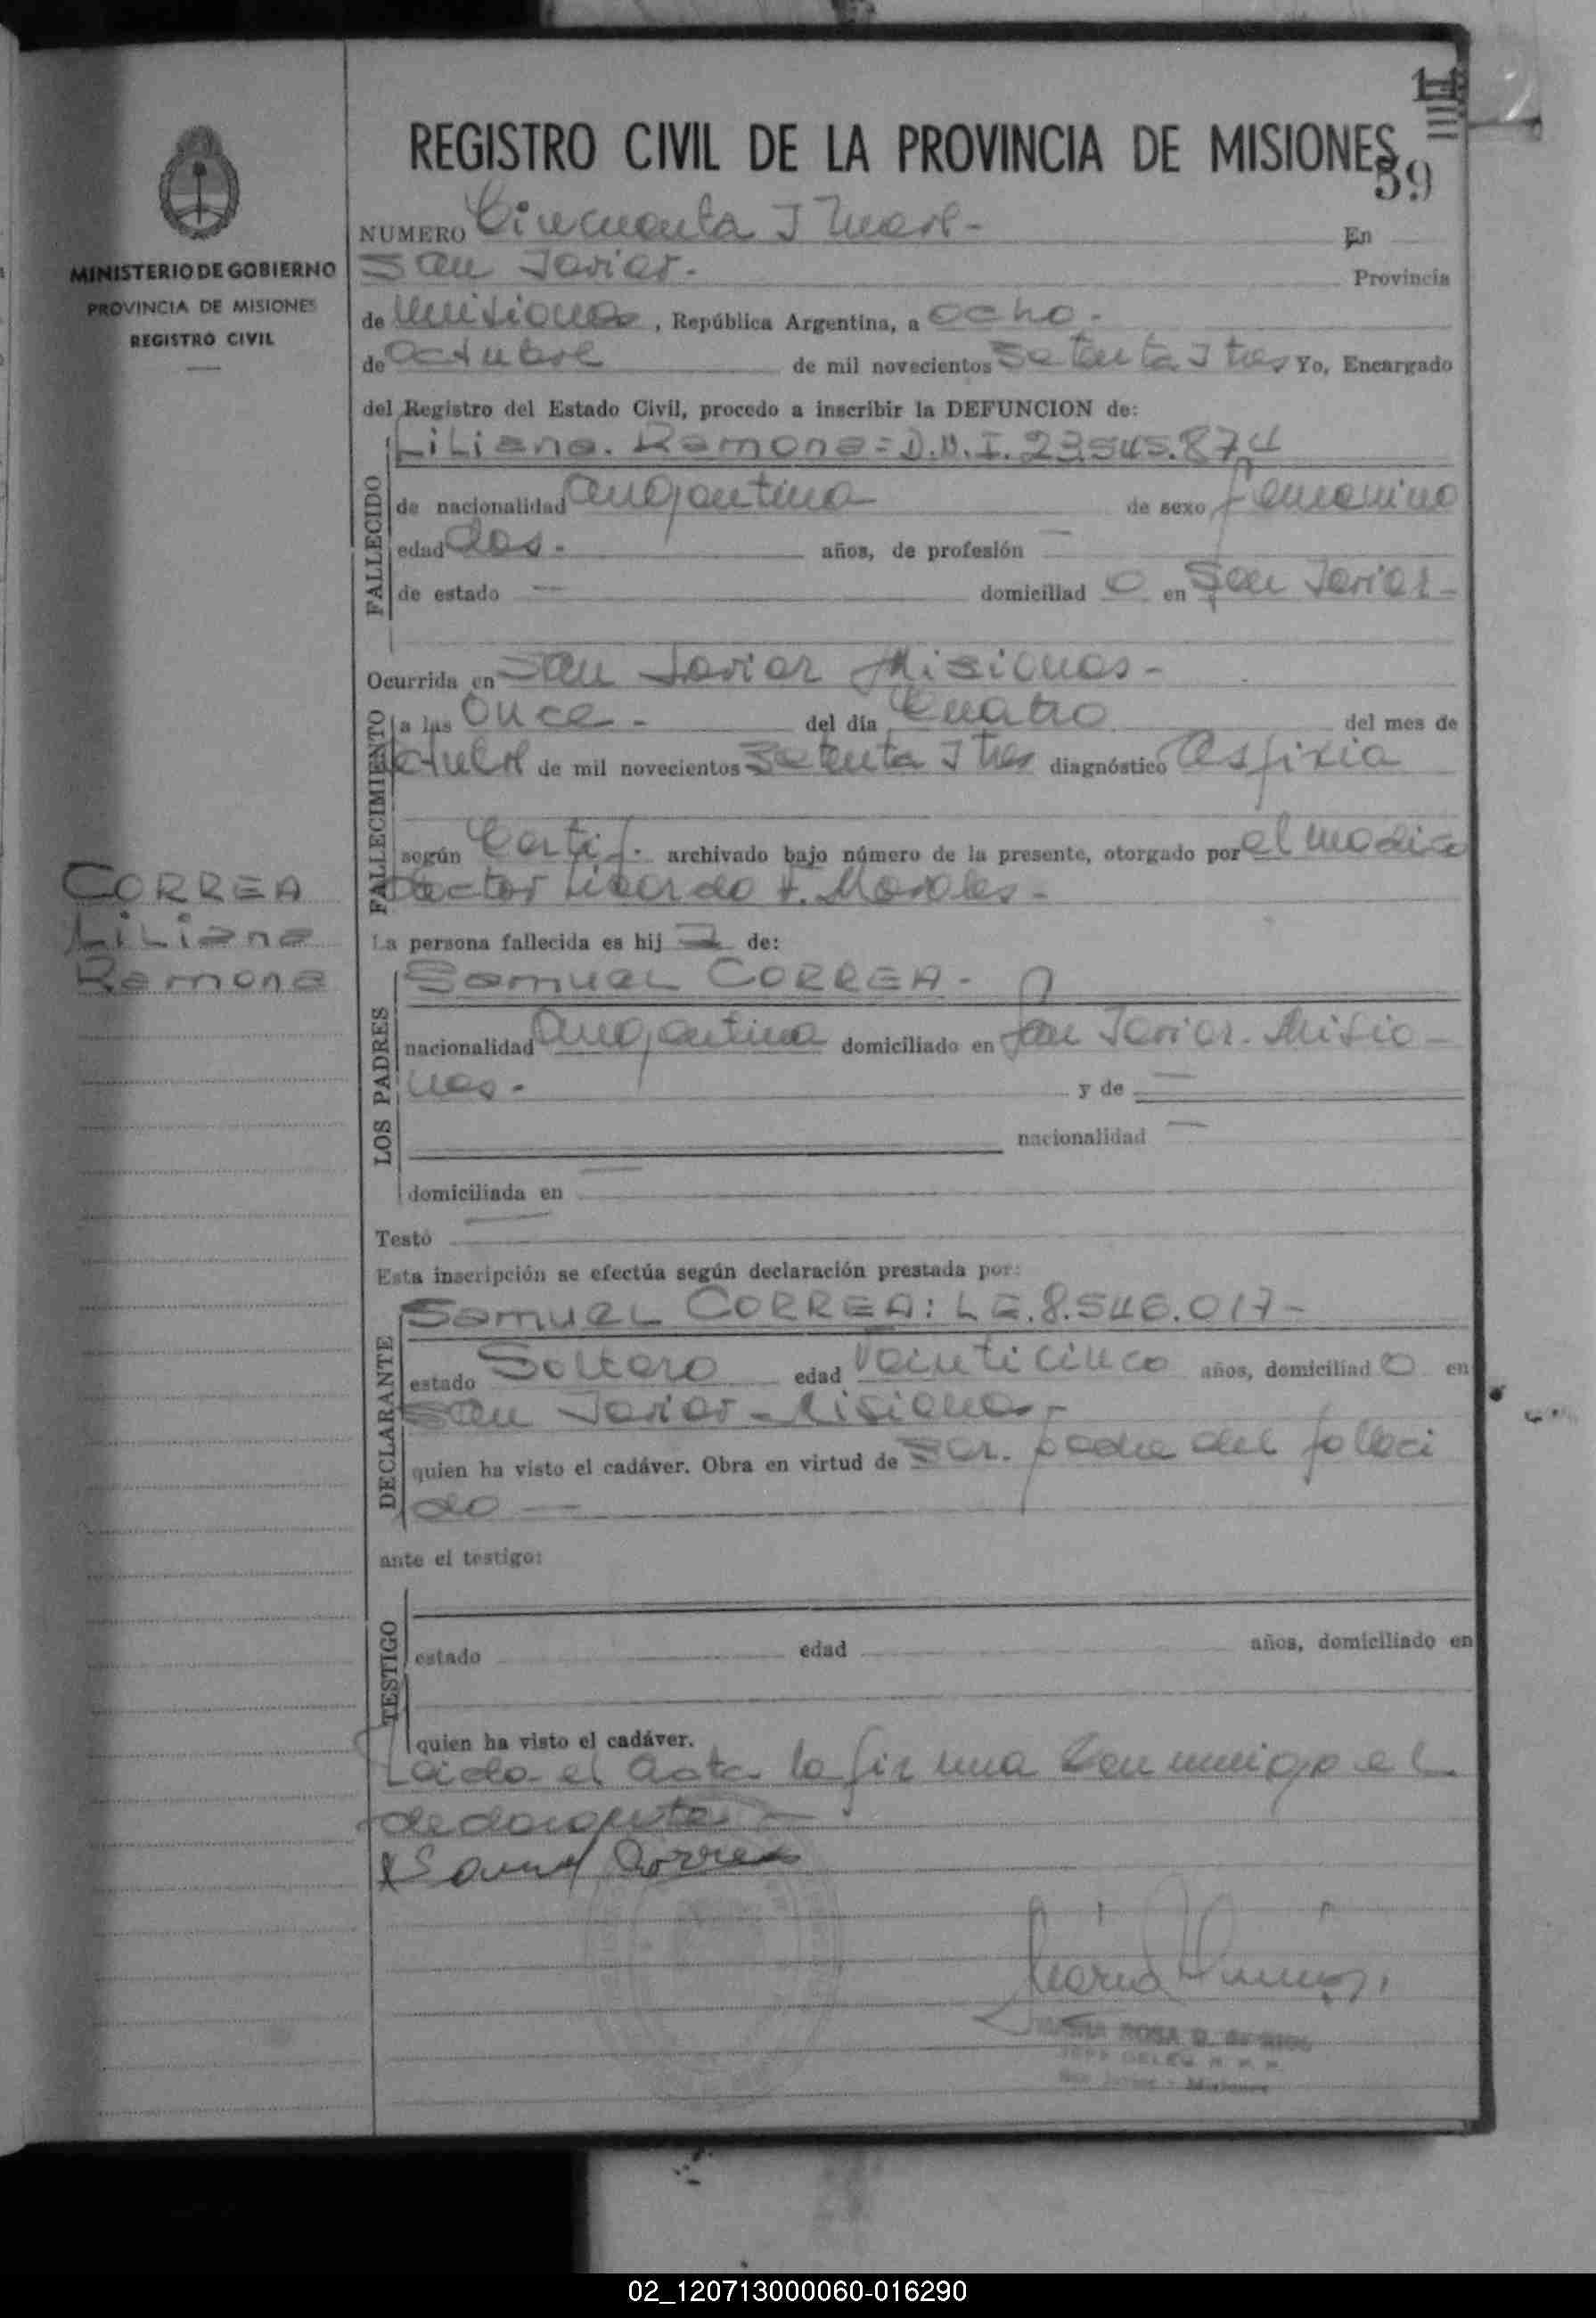 REGISTRO CIVIL DE LA PROVINCIA DE MISIONES
59
MINISTERIO DE GOBIERNO
PROVINCIA DE MISIONES
REGISTRO CIVIL
CORREA
Liliana
Ramona
NUMERO Cincuenta y nueve - En
San Javier - Provincia
de Misiones, República Argentina, a ocho -
de Octubre de mil novecientos Setenta y tres Yo, Encargado
del Registro del Estado Civil, procedo a inscribir la DEFUNCION de:
Liliana. Ramona = D.N.I. 23.545.874
FALLECIDO
de nacionalidad argentina de sexo femenino
edad dos - años, de profesión —
de estado — domiciliad o en San Javier -
Ocurrida en San Javier Misiones -
FALLECIMIENTO
a las Once - del día Cuatro del mes de
octubre de mil novecientos Setenta y tres diagnóstico Asfixia
según Certif. archivado bajo número de la presente, otorgado por el medico
doctor Lisardo F. Morales -
La persona fallecida es hij a de:
LOS PADRES
Samuel CORREA -
nacionalidad argentina domiciliado en San Javier - Misio-
nes - y de —
nacionalidad —
domiciliada en —
Testó —
Esta inscripción se efectúa según declaración prestada por:
DECLARANTE
Samuel CORREA: L.E. 8.546.017 -
estado Soltero edad Veinticinco años, domiciliad o en
San Javier - Misiones -
quien ha visto el cadáver. Obra en virtud de ser. padre del falleci
do —
ante el testigo:
TESTIGO
estado edad años, domiciliado en
quien ha visto el cadáver.
Leida el acta la firma conmigo el
declarante -
Samuel Correa
MARIA ROSA
San Javier - Misiones
02_120713000060-016290